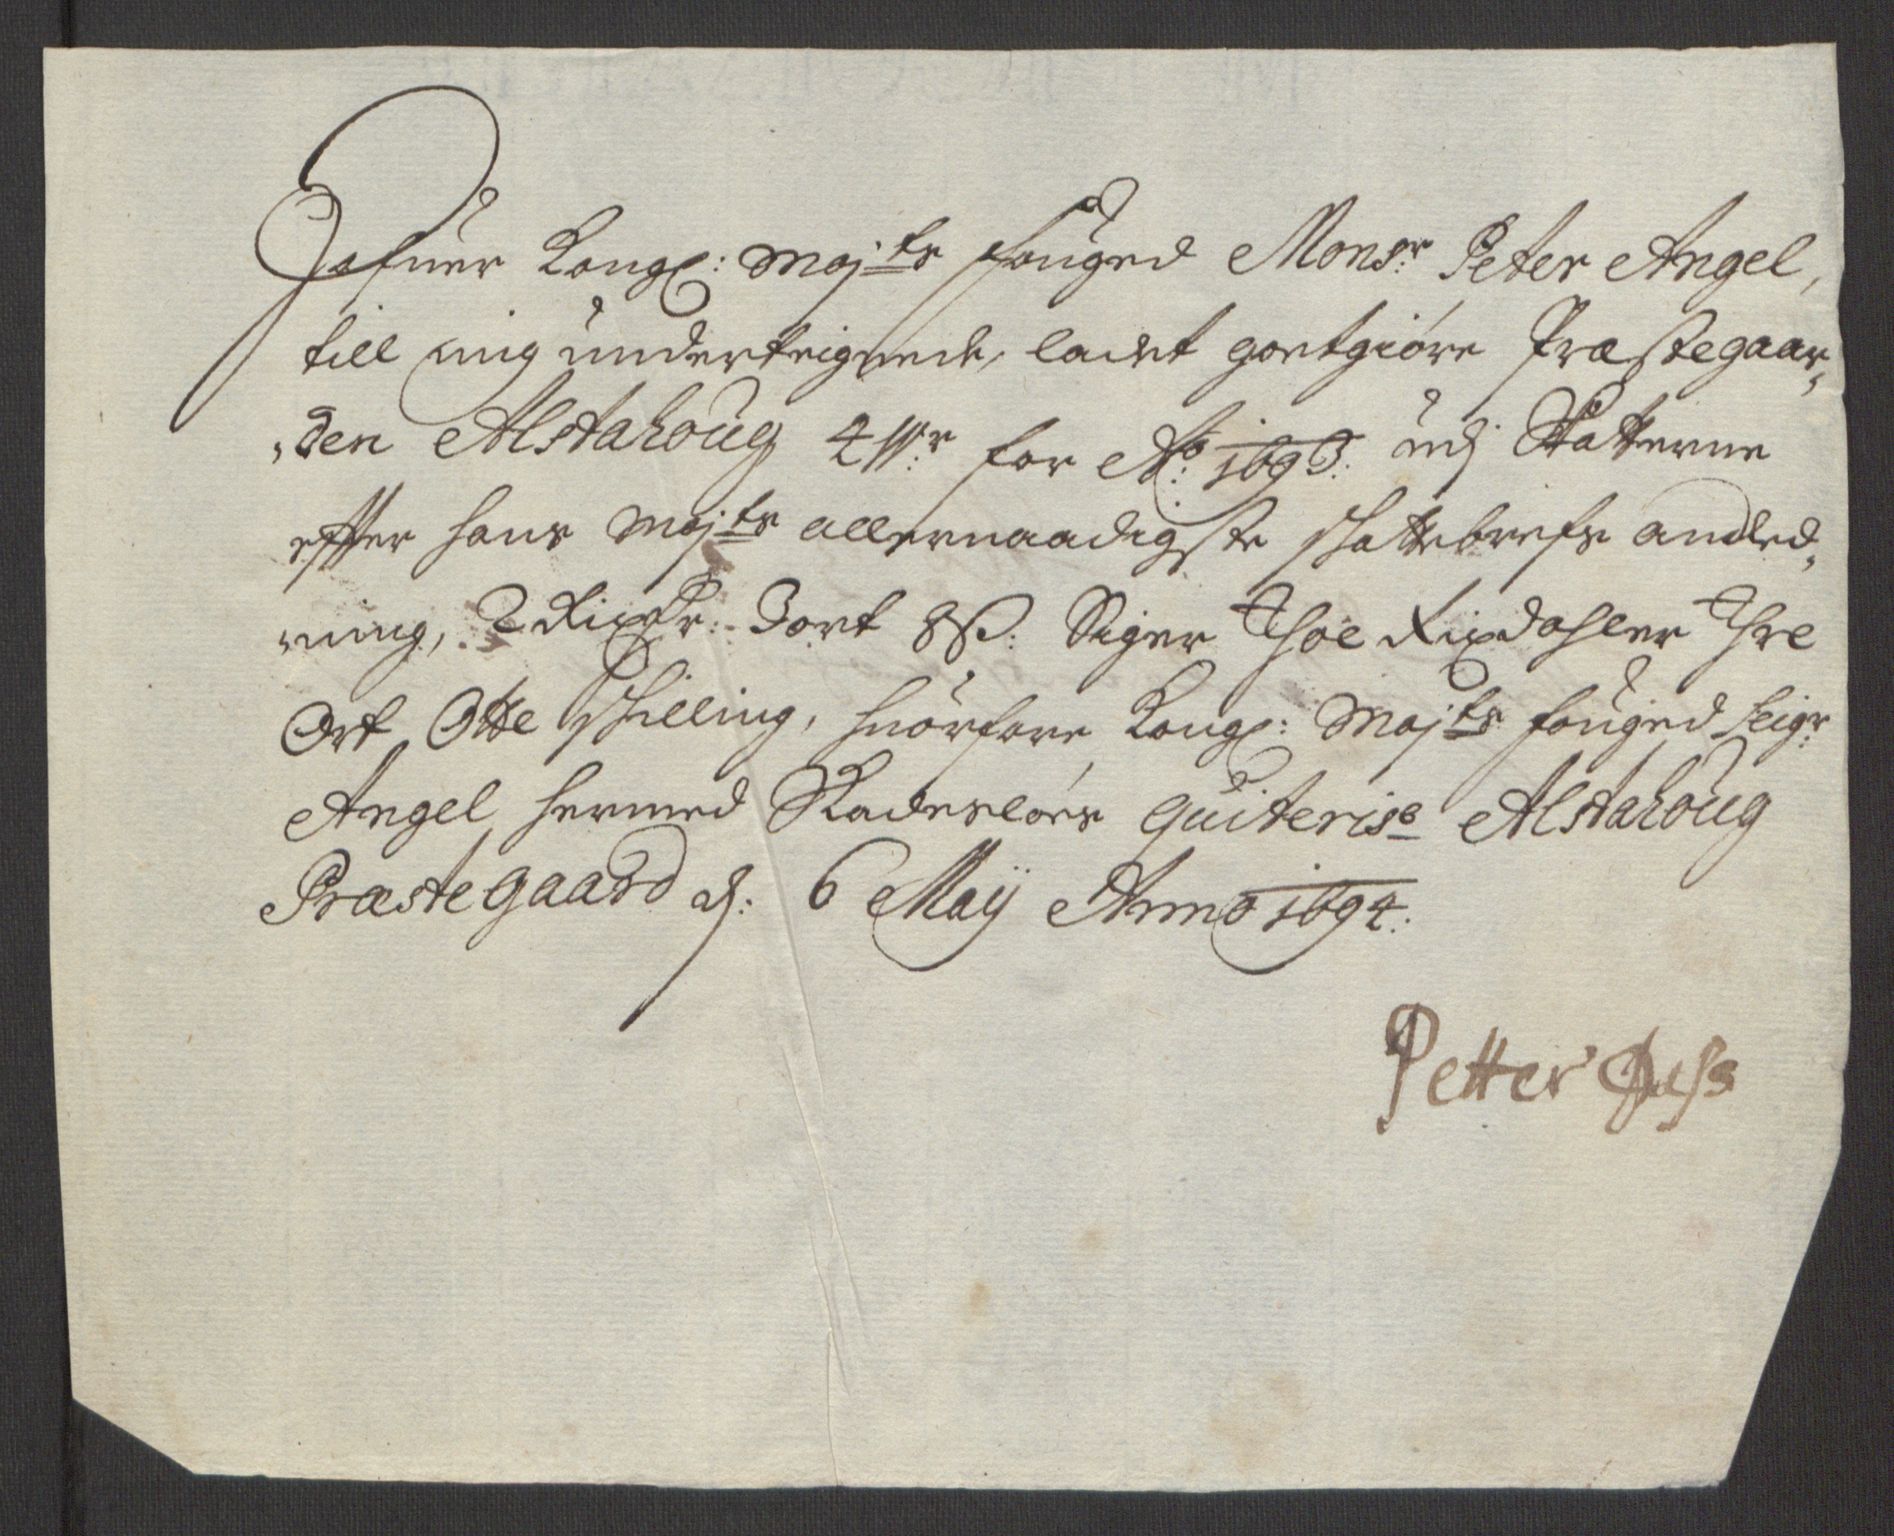 Hafuer Kongl: Maj:ts fouged Monsr: Peter Angel,
till mig underteignede, ladet goetgiöre Præstegaar,,
,,den Alstahoug 4 W:r for Ao: 1693. udj Skatterne
effter hans Maj:ts allernaadigste schattebrefs anled,,
,,ning, 2 Rixdlr: 3 ort 8 s: Siger Thoe Rixdahler Thre
Ort Otte schilling, huorfore Kongl: Maj:ts fouged Seigr:
Angel hermed Skadesløes quiteris: Alstahoug
Præstegaard d: 6 Maij Anno 1694.
Petter Dass